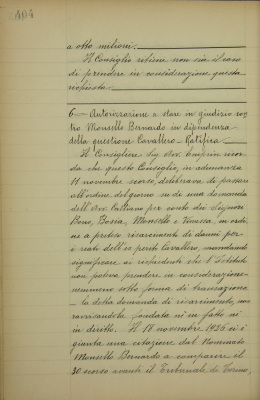 404
a otto milioni.
Il Consiglio ritiene non sia il caso
di prendere in considerazione questa
richiesta.
6 - Autorizzazione a stare in giudizio con
tro Monsello Bernardo in dipendenza
della questione Cavallero - Ratifica -
Il Consigliere Sig. Avv. ricor
da che questo Consiglio, in adunanza
11 novembre scorso, deliberava di passare
all'ordine del giorno su di una domanda
dell'Avv. Caltano per conto dei Signori
Bono, Bosia, Monsello e in ordi
ne a pretesi risarcimenti di danni per
i reati dell'ex perito Cavallero, mandando
significare ai richiedenti che l'Istituto
non poteva prendere in considerazione
nemmeno sotto forma di transazione
la detta domanda di risarcimento, non
ravvisandola fondata nè in fatto nè
in diritto. Il 18 novembre 1926 ci è
giunta una citazione dal nominato
Monsello Bernardo a comparire il
30 scorso avanti il Tribunale di Torino,